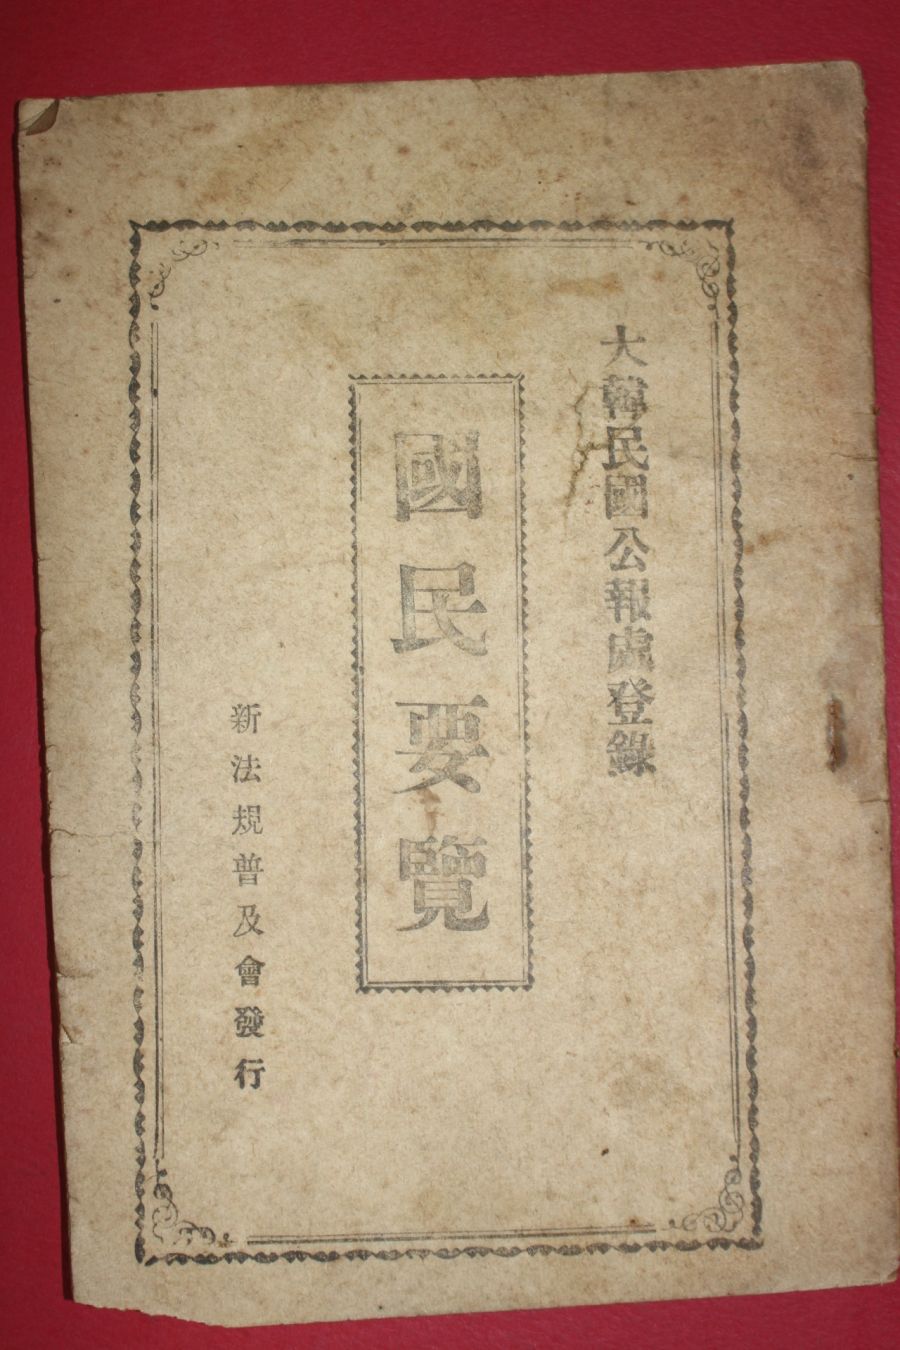 大韓民國公報處登錄
國民要覽
新法規普及會發行